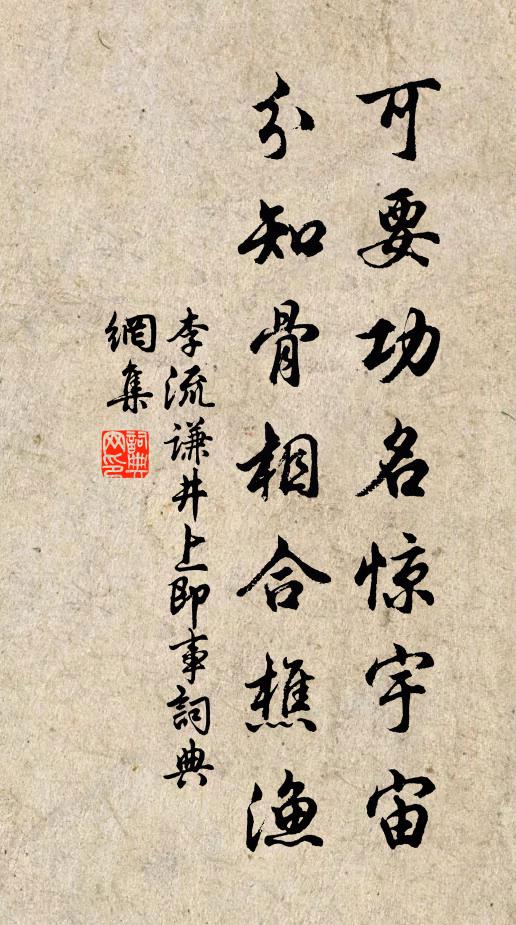 可要功名惊宇宙
分知骨相合樵渔
李流谦井上即事詞典
網集
詞典网印